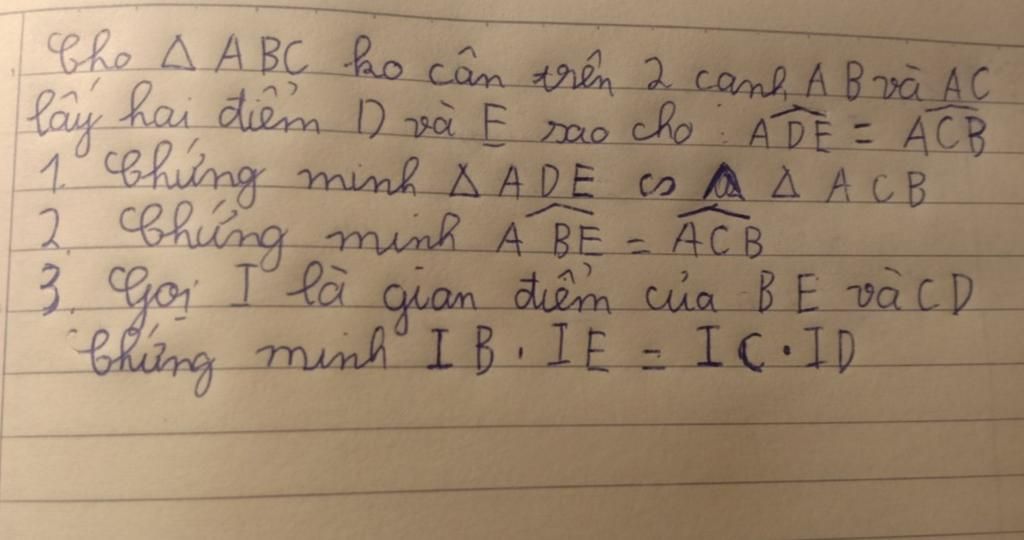 Cho Δ ABC ko cân trên 2 cạnh AB và AC
lấy hai điểm D và E sao cho : ADE = ACB
1. Chứng minh Δ ADE ∽ Δ ACB
2. Chứng minh ABE = ACB
3. Gọi I là gian điểm của BE và CD
Chứng minh IB . IE = IC . ID